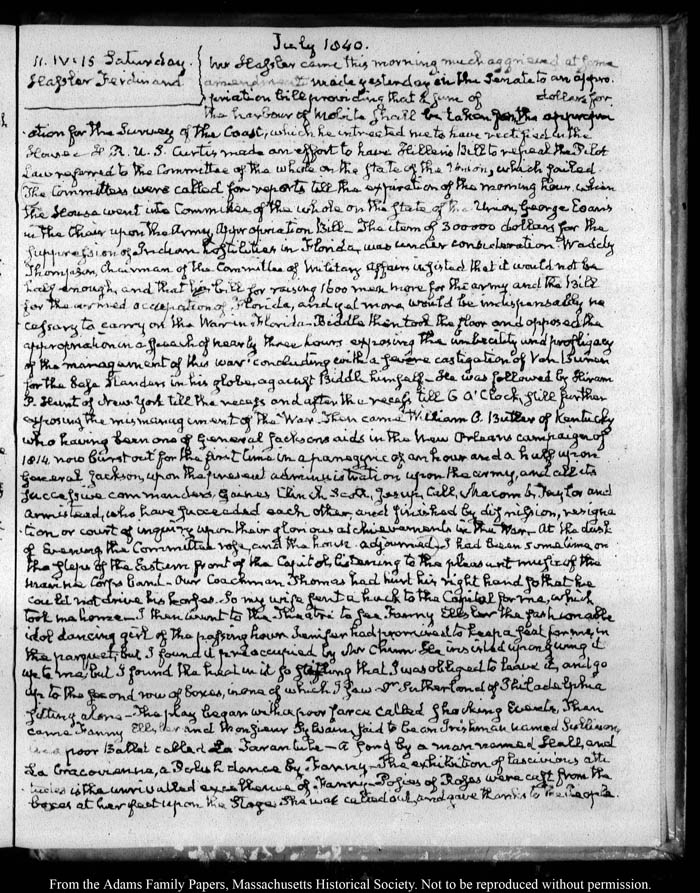 July 1840.
11. IV:15 Saturday.
Hassler Ferdinand
Mr Hassler came this morning much aggrieved at some
amendment made yesterday in the Senate to an appro-
priation bill providing that a sum of dollars for
the harbour of Mobile shall be taken from the appropri
-ation for the Survey of the Coast, which he intreated me to have rectified in the
House. H. R. U. S. Curtis made an effort to have Hillen's Bill to repeal the Pilot
Law referred to the Committee of the whole on the State of the Union, which failed.
The Committees were called for reports till the expiration of the morning hour, when
the House went into Committee of the whole on the State of the Union, George Evans
in the Chair upon the Army Appropriation Bill. The item of 300000 dollars for the
suppression of Indian hostilities in Florida, was under consideration. Waddy
Thompson, Chairman of the Committee of Military Affairs insisted that it would not be
half enough, and that his bill for raising 1600 men more for the army and the Bill
for the armed occupation of Florida, and yet more, would be indispensably ne
cessary to carry on the War in Florida. Biddle then took the floor and opposed the
appropriation in a speech of nearly three hours exposing the imbecility and profligacy
of the management of this war: concluding with a severe castigation of Van Buren
for the base slanders in his globe, against Biddle himself. He was followed by Hiram
P. Hunt of New York till the recess and after the recess till 6 O'Clock, still further
exposing the mismanagement of the War. Then came William O. Butler of Kentucky
who having been one of General Jackson's aids in the New Orleans campaign of
1814. now burst out for the first time in a panegyric of an hour and a half upon
General Jackson, upon the present administration upon the army, and all its
successive commanders, Gaines Clinch Scott, Jesup, Call, Macomb, Taylor and
Armistead, who have succeeded each other and finished by dismission, resigna
tion or court of inquiry upon their glorious achievements in the War. At the dusk
of Evening the Committee rose, and the house adjourned. I had been sometime on
the steps of the Eastern front of the Capitol, listening to the pleasant music of the
marine Corps band. Our Coachman Thomas had hurt his right hand so that he
could not drive his horses. So my wife sent a hack to the Capitol for me, which
took me home. I then went to the Theatre to see Fanny Elssler the fashionable
idol dancing girl of the passing hour. Jenifer had promised to keep a seat for me, in
the parquet, but I found it preoccupied by Mr Chinn. He insisted upon giving it
up to me, but I found the heat in it so stifling that I was obliged to leave it, and go
up to the second row of boxes, in one of which I saw Dr Sutherland of Philadelphia
sitting alone. The play began with a poor farce called Shocking Events. Then
came Fanny Elssler and Monsieur Sylvain, said to be an Irishman named Sullivan,
in a poor Ballet called La Tarantule. A song by a man named and
La Cracovienne, a Polish dance by Fanny. The exhibition of lascivious atti
tudes is the unrivalled excellence of Fanny. Posies of Roses were cast from the
boxes at her feet upon the Stage. She was called out, and gave thanks to the People.
From the Adams Family Papers, Massachusetts Historical Society. Not to be reproduced without permission.